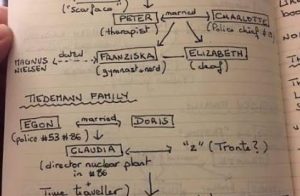 ("Scarface")
PETER married CHARLOTTE
(therapist) (Police chief #19)
MAGNUS NIELSEN dated FRANZISKA ELIZABETH
(gymnast+nerd) (deaf)
TIEDEMANN FAMILY
EGON married DORIS
(police #53 #86)
CLAUDIA "Z" (Tronte?)
(director nuclear plant
in #86
+
Time traveller)